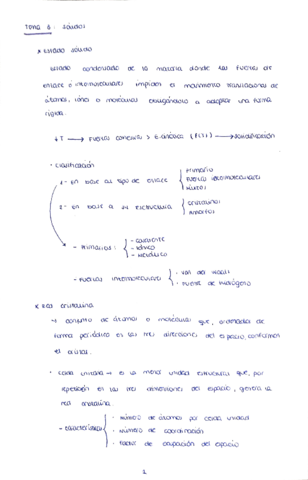 TEMA 6: SÓLIDOS
* Estado sólido
Estado condensado de la materia donde las fuerzas de
enlace o intermoleculares impiden el movimiento translacional de
átomos, iones o moléculas obligándolo a adoptar una forma
rígida.
↓T → Fuerzas cohesivas > E. cinética (↓↓) → Solidificación
• Clasificación
1 - En base al tipo de enlace
Primario
Fuerzas intermoleculares
Mixtos
2 - En base a su estructura
Cristalinos
Amorfos
- Primarios:
- Covalente
- Iónico
- Metálico
- Fuerzas intermoleculares
- Van der Waals
- Puente de hidrógeno
* Red cristalina
→ conjunto de átomos o moléculas que, ordenados de
forma periódica en las tres direcciones del espacio, conforman
el cristal.
• Celda unitaria → es la menor unidad estructural que, por
repetición en las tres dimensiones del espacio, genera la
red cristalina.
- Características
- Número de átomos por celda unidad
- Número de coordinación
- Factor de ocupación del espacio
1